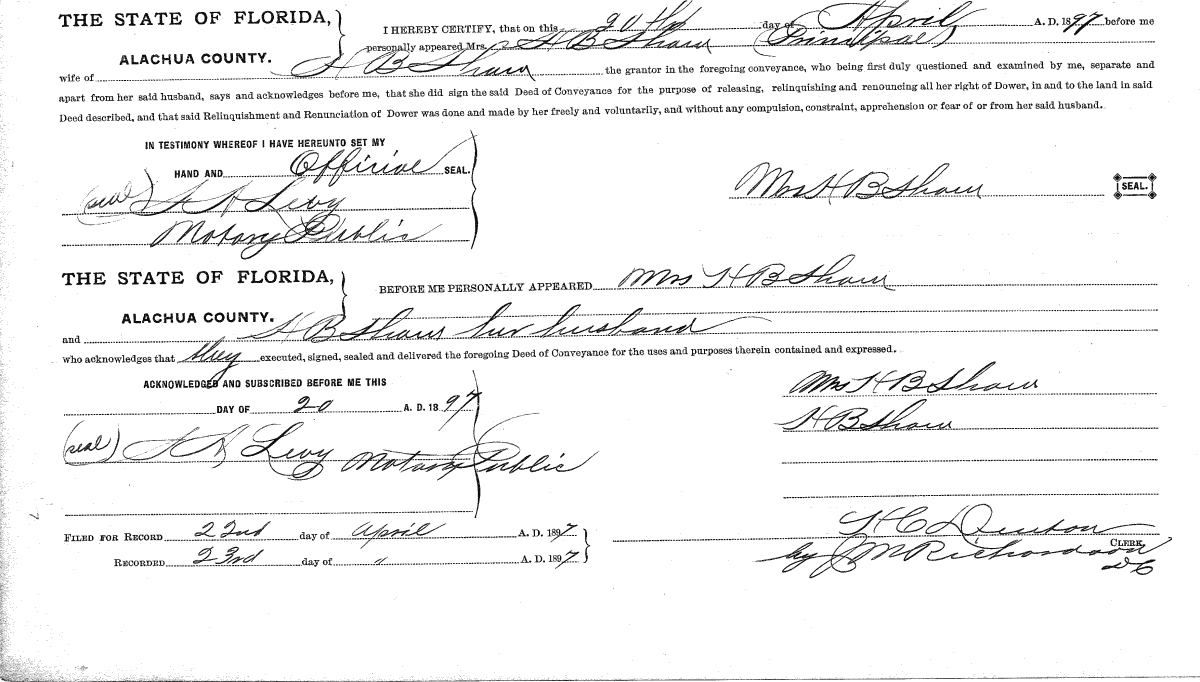 THE STATE OF FLORIDA,
ALACHUA COUNTY.
I HEREBY CERTIFY, that on this 20th day of April A. D. 1897 before me
personally appeared Mrs. H B Shaw (Principal)
wife of H B Shaw the grantor in the foregoing conveyance, who being first duly questioned and examined by me, separate and
apart from her said husband, says and acknowledges before me, that she did sign the said Deed of Conveyance for the purpose of releasing, relinquishing and renouncing all her right of Dower, in and to the land in said
Deed described, and that said Relinquishment and Renunciation of Dower was done and made by her freely and voluntarily, and without any compulsion, constraint, apprehension or fear of or from her said husband.
IN TESTIMONY WHEREOF I HAVE HEREUNTO SET MY
HAND AND Official SEAL.
(seal) Levy
Notary Public
Mrs H B Shaw SEAL.
THE STATE OF FLORIDA,
ALACHUA COUNTY.
BEFORE ME PERSONALLY APPEARED Mrs H B Shaw
and H B Shaw her husband
who acknowledges that they executed, signed, sealed and delivered the foregoing Deed of Conveyance for the uses and purposes therein contained and expressed.
ACKNOWLEDGED AND SUBSCRIBED BEFORE ME THIS
DAY OF 20 A. D. 1897
(seal) Levy Notary Public
Mrs H B Shaw
H B Shaw
FILED FOR RECORD 22nd day of April A. D. 1897
RECORDED 23rd day of " A. D. 1897
H C Denton
CLERK.
by J M Richardson
DC